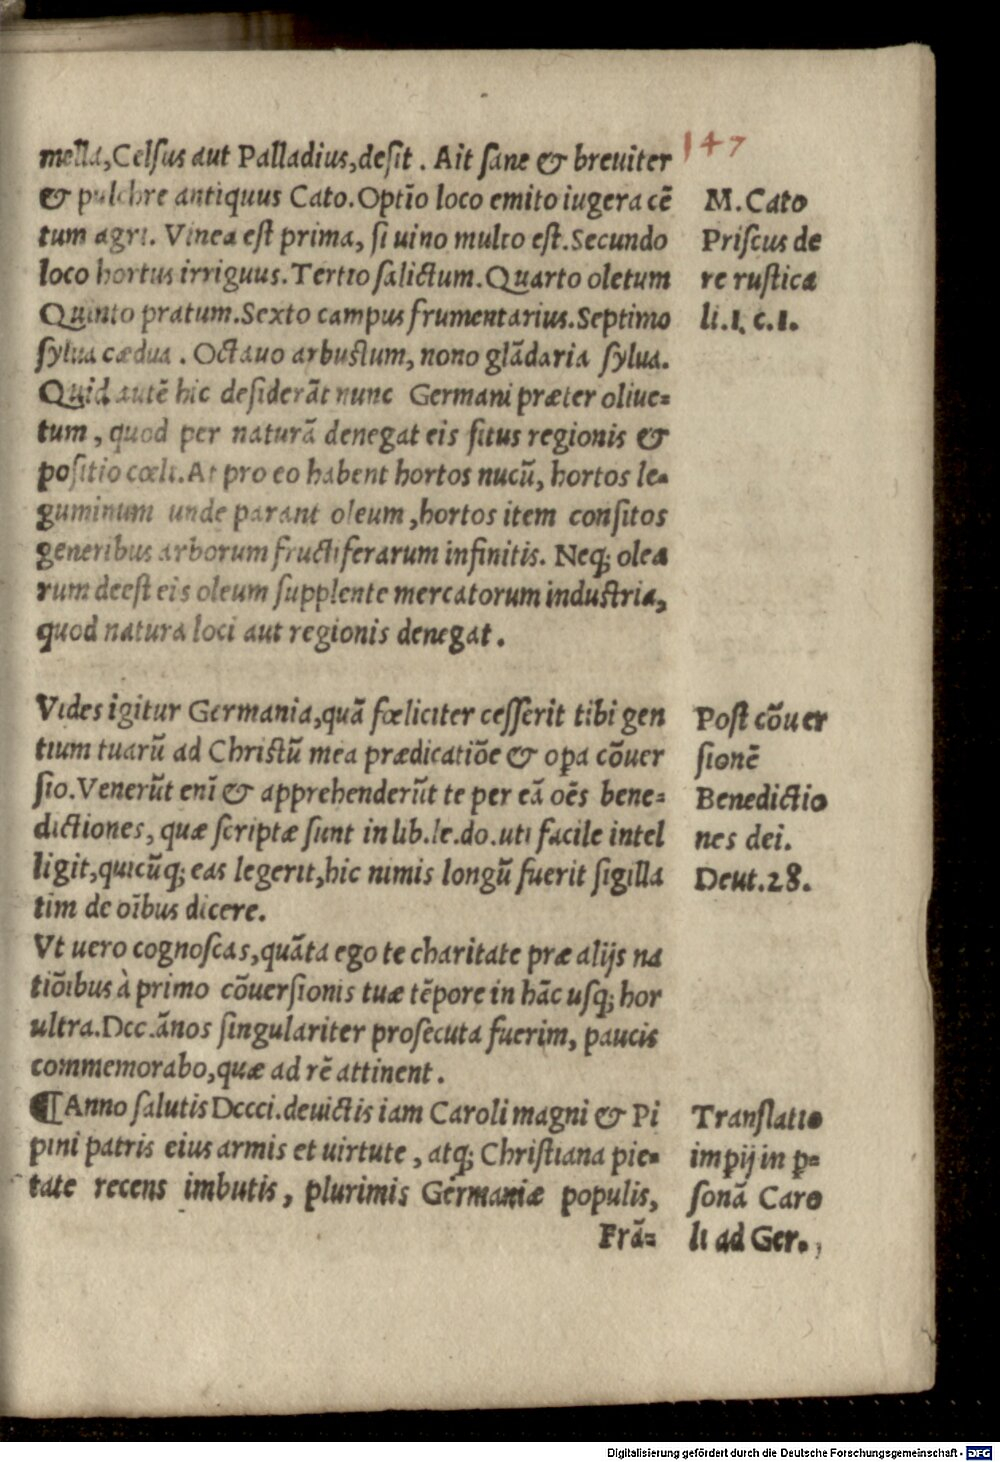 147
mella, Celſus aut Palladius, deſit. Ait ſane & breuiter
& pulchre antiquus Cato. Optĩo loco emito iugera cẽ
tum agri. Vinea eſt prima, ſi uino multo eſt. Secundo
loco hortus irriguus. Tertio ſalictum. Quarto oletum
Quinto pratum. Sexto campus frumentarius. Septimo
ſylua cædua. Octauo arbuſtum, nono glãdaria ſylua.
Quid autẽ hic deſiderãt nunc Germani præter oliue=
tum, quod per naturã denegat eis ſitus regionis &
poſitio cœli. At pro eo habent hortos nucũ, hortos le=
guminum unde parant oleum, hortos item conſitos
generibus arborum fructiferarum infinitis. Neq; olea
rum deeſt eis oleum ſupplente mercatorum induſtria,
quod natura loci aut regionis denegat.
M. Cato
Priſcus de
re ruſtica
li.1. c.1.
Vides igitur Germania, quã fœliciter ceſſerit tibi gen
tium tuarũ ad Chriſtũ mea prædicatiõe & oꝑa cõuer
ſio. Venerũt enĩ & apprehenderũt te per eã oẽs bene=
dictiones, quæ ſcriptæ ſunt in lib. le. do. uti facile intel
ligit, quicũq; eas legerit, hic nimis longũ fuerit ſigilla
tim de oĩbus dicere.
Poſt cõuer
ſionẽ
Benedictio
nes dei.
Deut. 28.
Vt uero cognoſcas, quãta ego te charitate præ alijs na
tiõibus à primo cõuerſionis tuæ tẽpore in hãc uſq; hor
ultra. Dcc. ãnos ſingulariter proſecuta fuerim, paucis
commemorabo, quæ ad rẽ attinent.
¶ Anno ſalutis Dccci. deuictis iam Caroli magni & Pi
pini patris eius armis et uirtute, atq; Chriſtiana pie=
tate recens imbutis, plurimis Germaniæ populis,
Frã=
Tranſlatio
impij in ꝑ=
ſonã Caro
li ad Ger.,
Digitalisierung gefördert durch die Deutsche Forschungsgemeinschaft - DFG